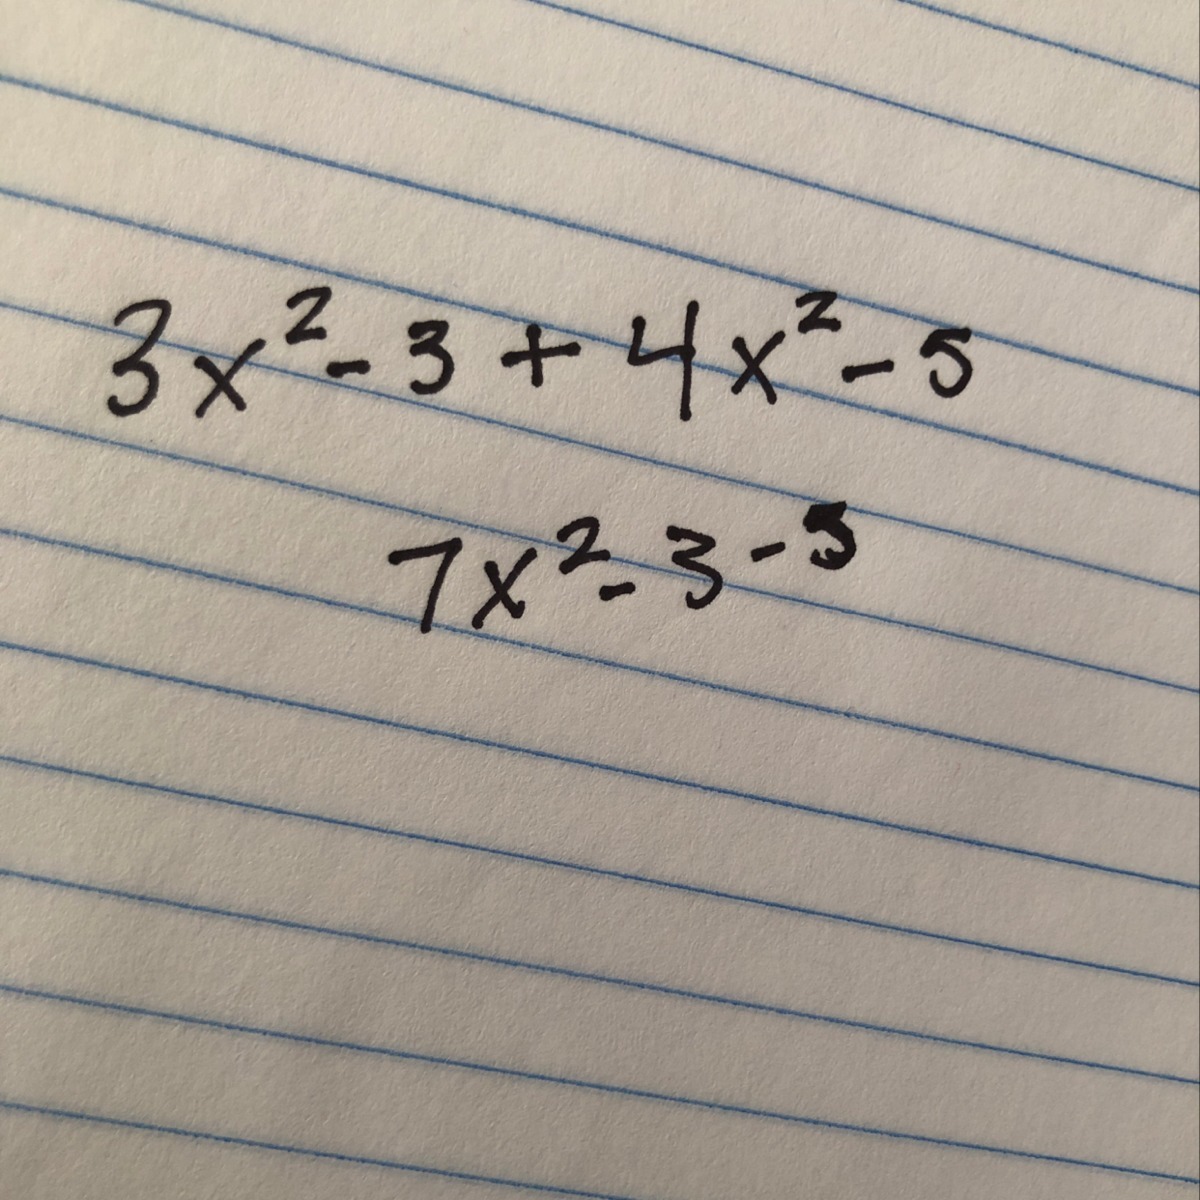 3x² - 3 + 4x² - 5
7x² - 3 - 5